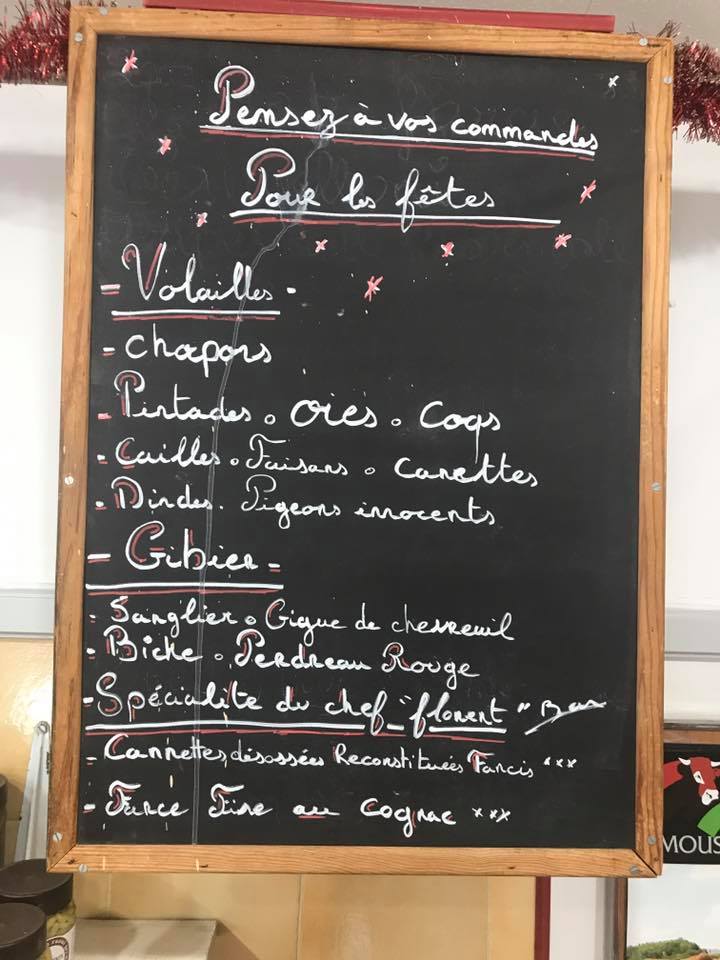 Pensez à vos commandes
Pour les fêtes
= Volailles -
- Chapons
- Pintades . Oies . Coqs
- Cailles . Faisans . Canettes
- Dindes . Pigeons innocents
- Gibier -
- Sanglier . Gigue de chevreuil
- Biche . Perdreau Rouge
- Spécialité du chef "florent"
- Cannettes désossées Reconstituées Farcis ***
- Farce Fine au cognac ***
MOUS